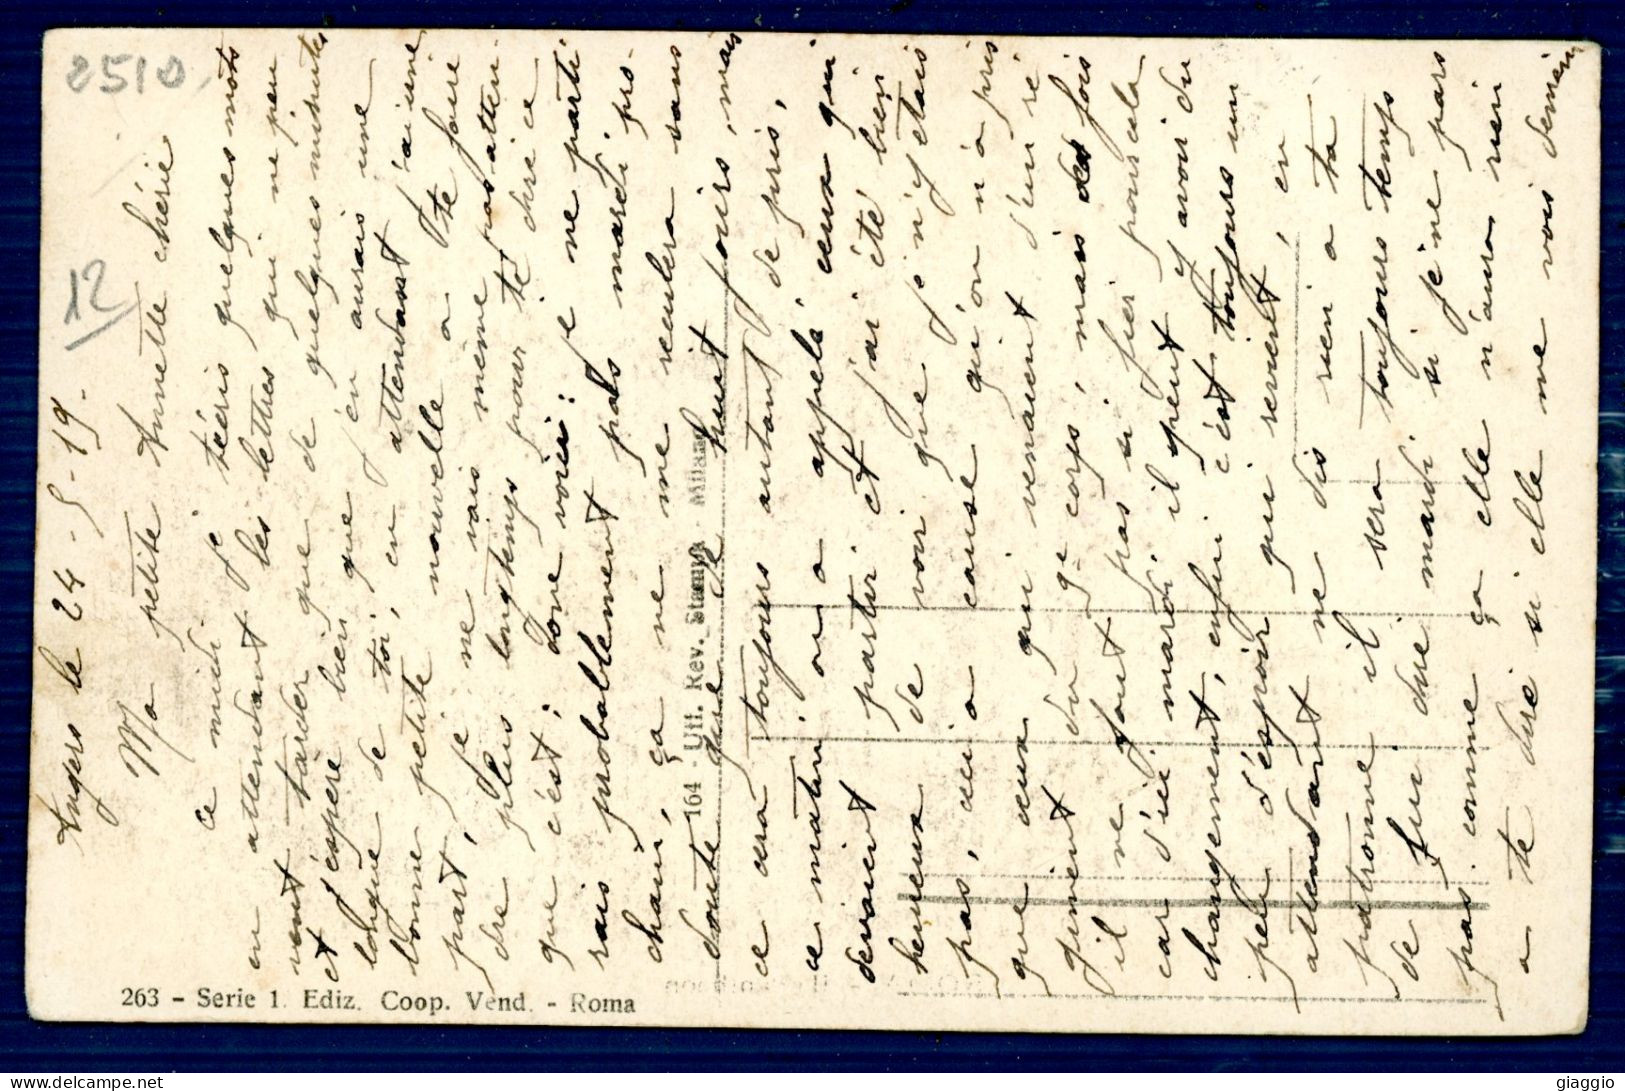 2510.
12
Angers le 24-5-19-
Ma petite Annette chérie
ce midi je t'écris quelques mots
en attendant les lettres qui ne peu
vent tarder que de quelques minutes
et j'espère bien que j'en aurais une
longue de toi, en attendant j'ai une
bonne petite nouvelle a te faire
part, je ne vais même pas atten-
dre plus longtemps pour te dire ce
que c'est; donc voici: je ne parti
rais probablement pas mardi pro-
chain, ça ne me reculera sans
doute que de huit jours, mais
ce sera toujours autant de pris,
ce matin, on a appelé ceux qui
devaient partir et j'ai été bien
heureux de voir que je n'y étais
pas, ceci a cause qu'on n'a pris
que ceux qui venaient d'un ré
giment du 9e corps, mais des fois
il ne faut pas si fier pour cela
car d'ici mardi il peut y avoir du
changement, enfin c'est toujours un
peu d'espoir qui revient, en
attendant ne dis rien a ta
patronne il sera toujours temps
de lui dire mardi si je ne pars
pas comme ça elle n'aura rien
a te dire si elle me vois demain
263 - Serie 1. Ediz. Coop. Vend. - Roma
164 - Uff. Rev. Stampa - Milano